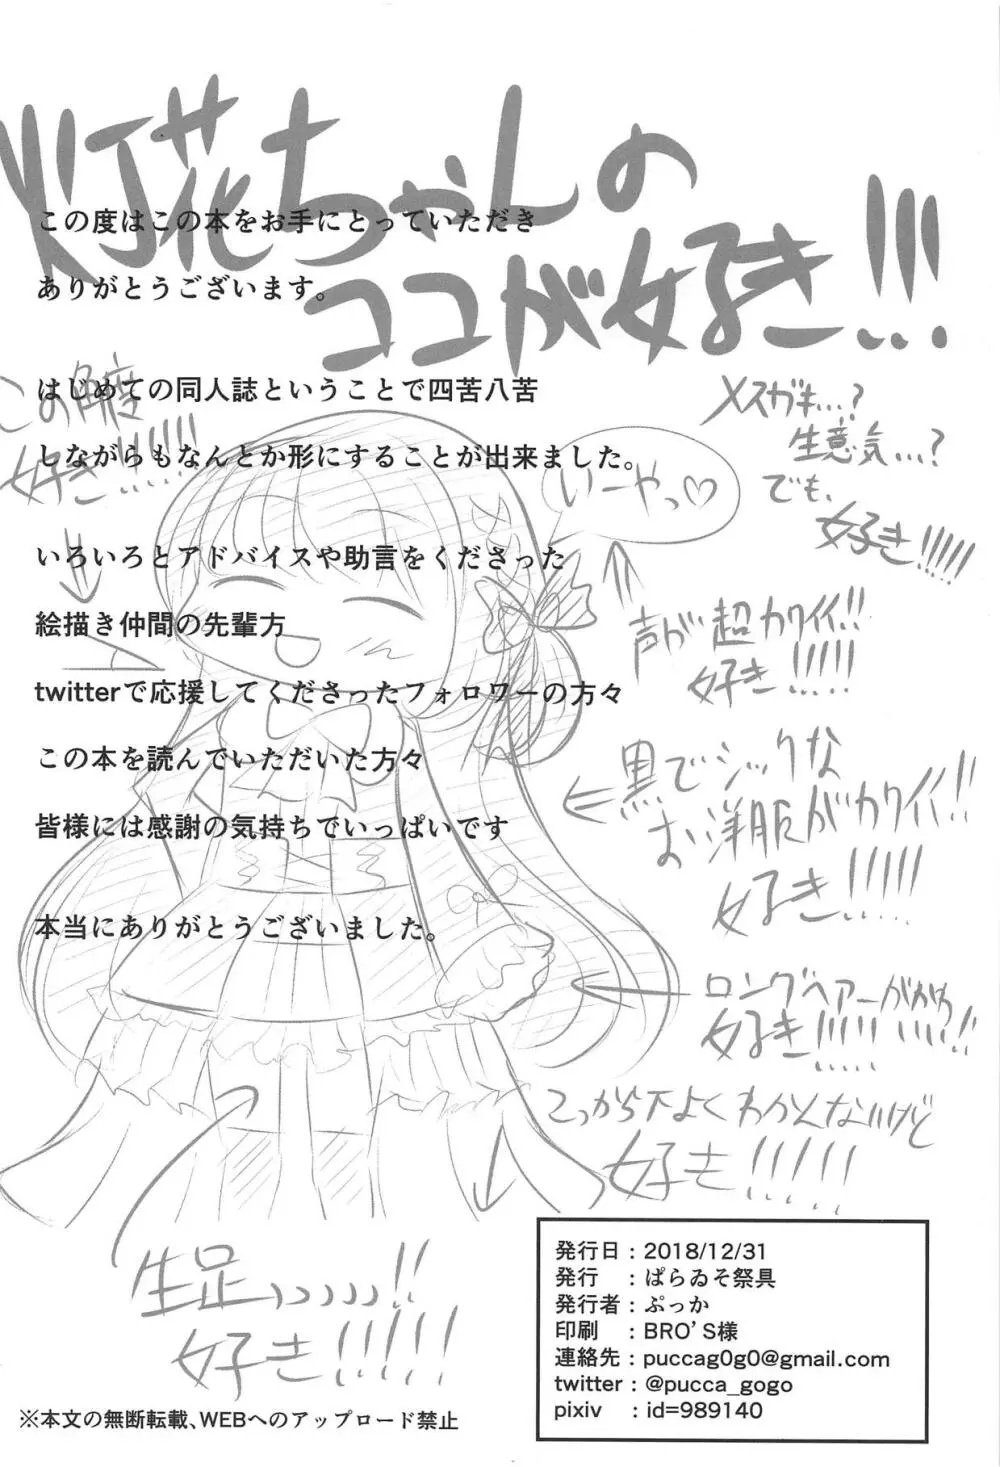 灯花ちゃんの
ココが好き!!!
この度はこの本をお手にとっていただき
ありがとうございます。
はじめての同人誌ということで四苦八苦
しながらもなんとか形にすることが出来ました。
いろいろとアドバイスや助言をくださった
絵描き仲間の先輩方
twitterで応援してくださったフォロワーの方々
この本を読んでいただいた方々
皆様には感謝の気持ちでいっぱいです
本当にありがとうございました。
この角度
好き!!!!!
いーやっ♡
メスガキ...?
生意気...?
でも、
好き!!!!!
声が超カワイイ!!
好き!!!!!
黒でシックな
お洋服がカワイイ!!
好き!!!!!
ロングヘアーがかわ
好き!!!!!
こっから下よくわかんないけど
好き!!!!!
生足ぃぃぃぃぃ!!
好き!!!!!
発行日：2018/12/31
発行　：ぱらゐそ祭具
発行者：ぷっか
印刷　：BRO'S様
連絡先：puccag0g0@gmail.com
twitter：@pucca_gogo
pixiv　：id=989140
※本文の無断転載、WEBへのアップロード禁止